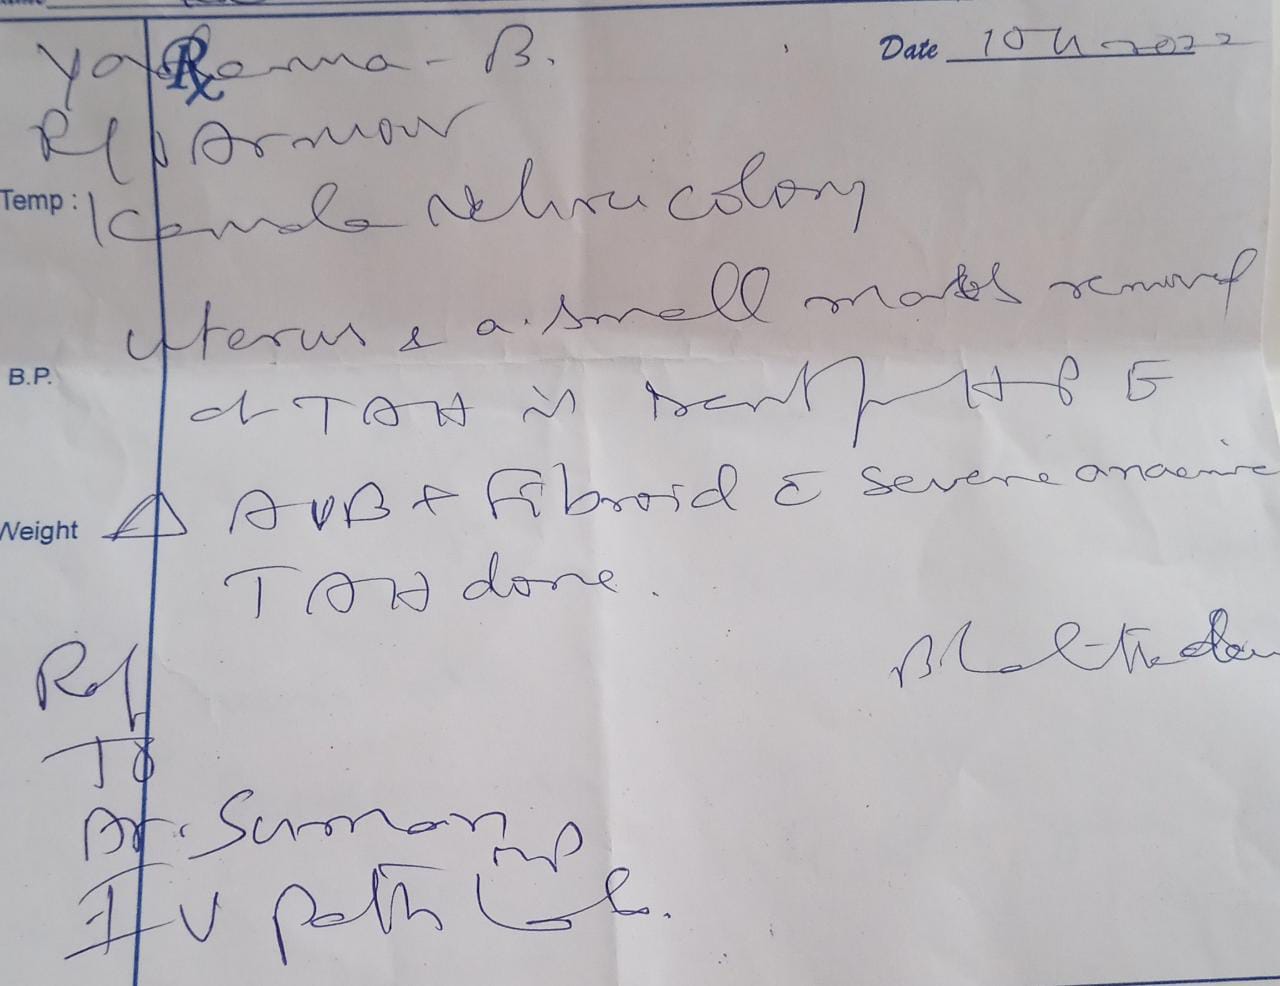 Date 10 4 2022
- B.
R/o Armour
Temp :
Kamala Nehru colony
uterus & a small removed
B.P.
at TAH is sent for HPE
Weight △ AUB + Fibroid c̄ severe anaemia
TAH done.
Ref
To
Dr. Suman
IV path Lab.